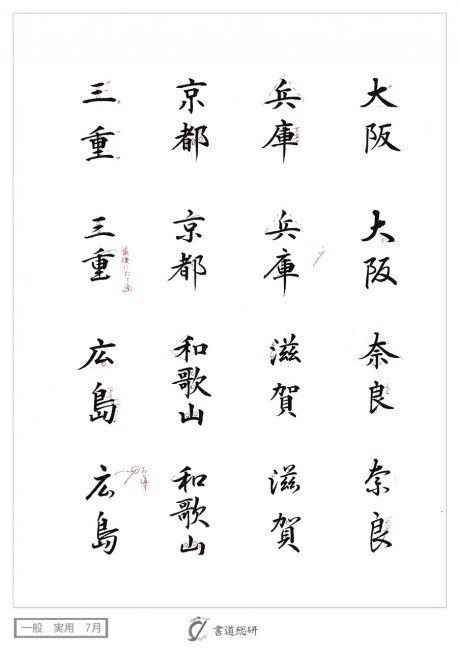 大阪
兵庫
京都
三重
大阪
兵庫
京都
三重
奈良
滋賀
和歌山
広島
奈良
滋賀
和歌山
広島
一般　実用　7月
書道総研